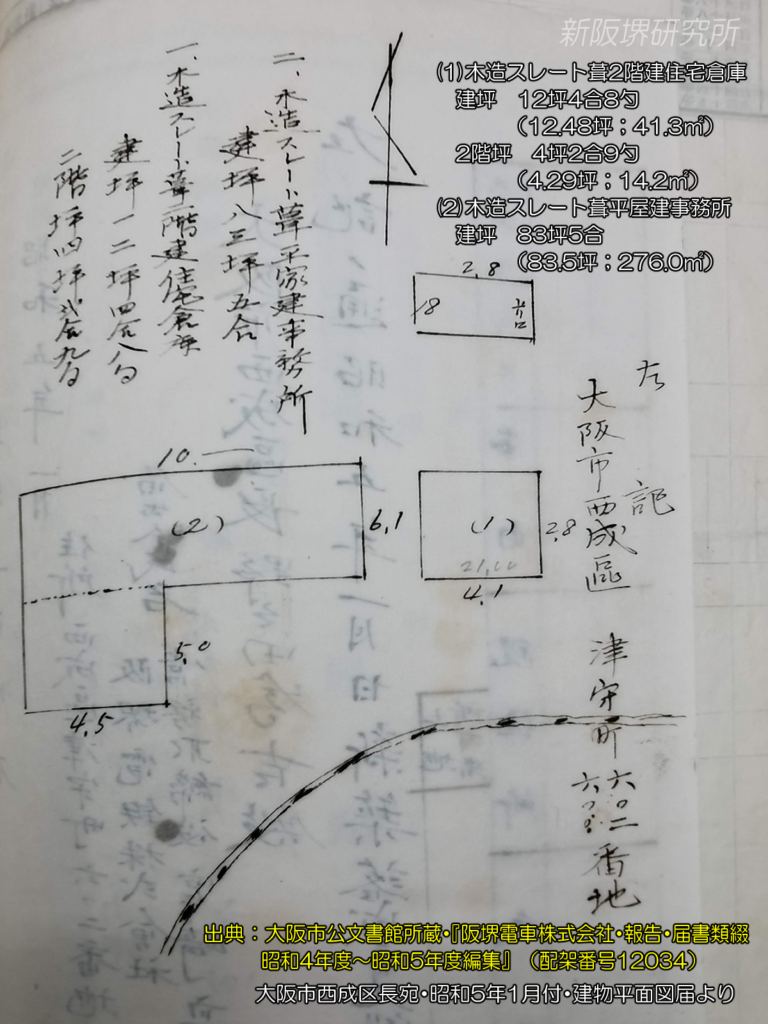 新阪堺研究所
(1)木造スレート葺2階建住宅倉庫
建坪 12坪4合8勺
(12.48坪;41.3㎡)
2階坪 4坪2合9勺
(4.29坪;14.2㎡)
(2)木造スレート葺平屋建事務所
建坪 83坪5合
(83.5坪;276.0㎡)
左記
大阪市西成區津守町六〇二番地
二、木造スレート葺平家建事務所
建坪八三坪五合
一、木造スレート葺二階建住宅倉庫
建坪一二坪四合八勺
二階坪四坪弐合九勺
2,8
18
10.一
(2)
6,1
(1)
2,8
21,00
4,1
5,0
4,5
出典:大阪市公文書館所蔵・『阪堺電車株式会社・報告・届書類綴
昭和4年度〜昭和5年度編集』(配架番号12034)
大阪市西成区長宛・昭和5年1月付・建物平面図届より